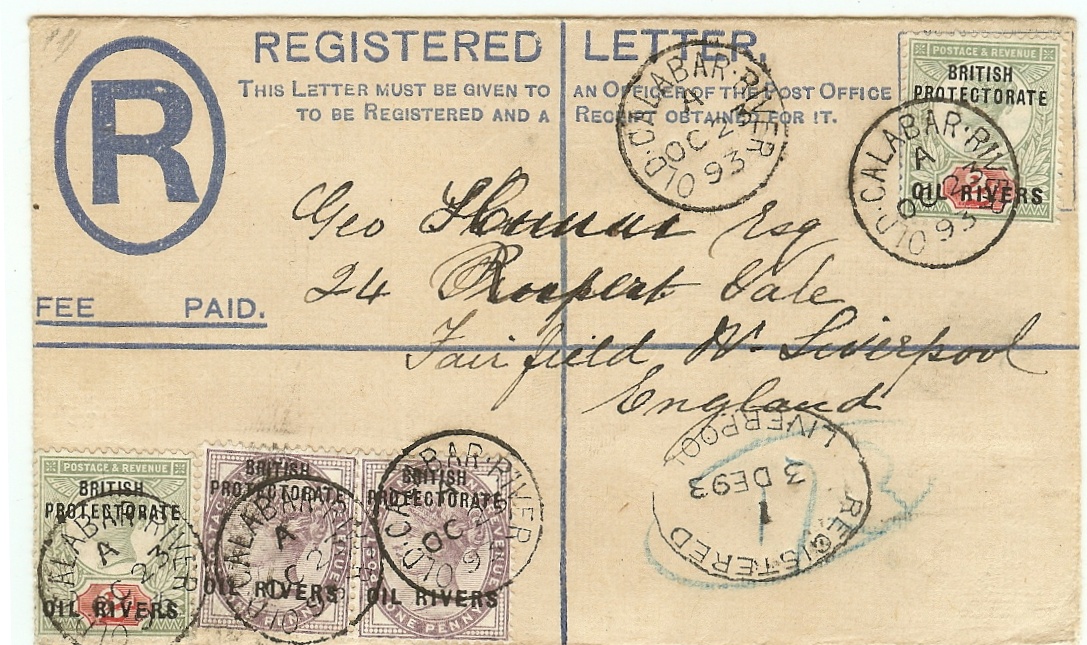 R
REGISTERED LETTER.
THIS LETTER MUST BE GIVEN TO AN OFFICER OF THE POST OFFICE
TO BE REGISTERED AND A RECEIPT OBTAINED FOR IT.
FEE PAID.
OLD·CALABAR·RIVER
A
OC 23
93
POSTAGE & REVENUE
BRITISH
PROTECTORATE
OIL RIVERS
OLD·CALABAR·RIVER
A
OC 23
93
Geo Thomas Esq
24 Prospect Vale
Fairfield Nr Liverpool
England
LIVERPOOL
3 DE 93
1
REGISTERED
POSTAGE & REVENUE
BRITISH
PROTECTORATE
OIL RIVERS
CALABAR·RIVER
A
OC 23
BRITISH
PROTECTORATE
OIL RIVERS
CALABAR·RIVER
A
OC 2
BRITISH
PROTECTORATE
OIL RIVERS
ONE PENNY
OLD·CALABAR·RIVER
OC